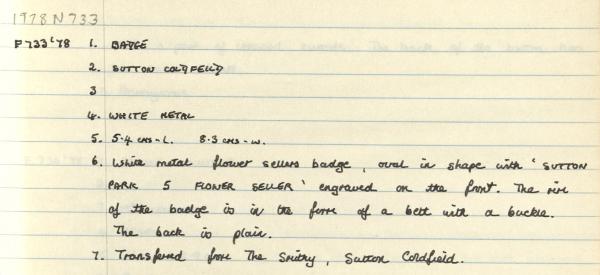 1978 N 733
F733'78 1. BADGE
2. SUTTON COLDFIELD
3
4. WHITE METAL
5. 5.4 cms - L. 8.3 cms - W.
6. White metal flower sellers badge, oval in shape with 'SUTTON
PARK 5 FLOWER SELLER' engraved on the front. The rim
of the badge is in the form of a belt with a buckle.
The back is plain.
7. Transferred from The Smithy, Sutton Coldfield.